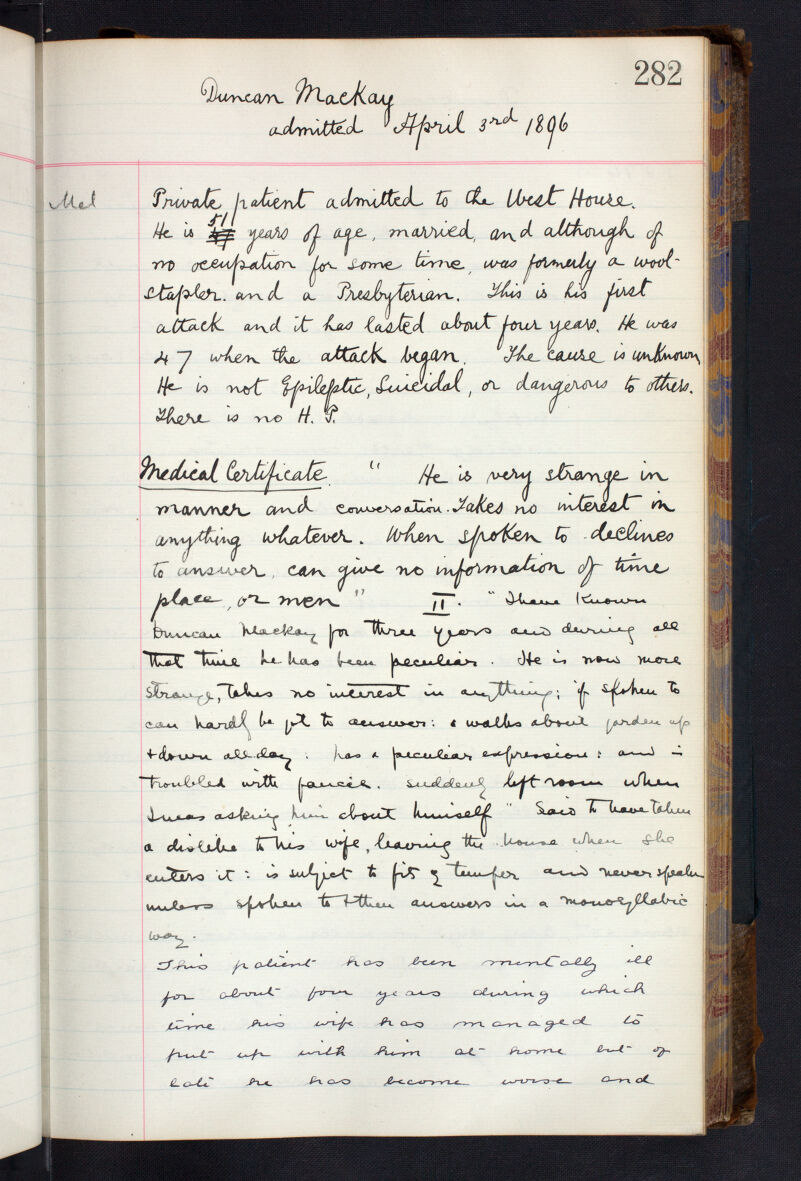 282
Duncan MacKay
admitted April 3rd 1896
Mel
Private patient admitted to the West House.
He is 51 years of age, married, and although of
no occupation for some time, was formerly a wool-
stapler. and a Presbyterian. This is his first
attack and it has lasted about four years. He was
47 when the attack began. The cause is unknown
He is not Epileptic, Suicidal, or dangerous to others.
There is no H. P.
Medical Certificate. " He is very strange in
manner and conversation. Takes no interest in
anything whatever. When spoken to declines
to answer, can give no information of time
place, or men " II. " I have Known
Duncan Mackay for three years and during all
that time he has been peculiar. He is now more
strange, takes no interest in anything; if spoken to
can hardly be got to answer: & walks about garden up
& down all day. has a peculiar expression: and is
troubled with fancies. suddenly left room when
I was asking him about himself " Said to have taken
a dislike to his wife, leaving the house when she
enters it: is subject to fits of temper and never speaks
unless spoken to & then answers in a monosyllabic
way.
This patient has been mentally ill
for about four years during which
time his wife has managed to
put up with him at home but of
late he has become worse and